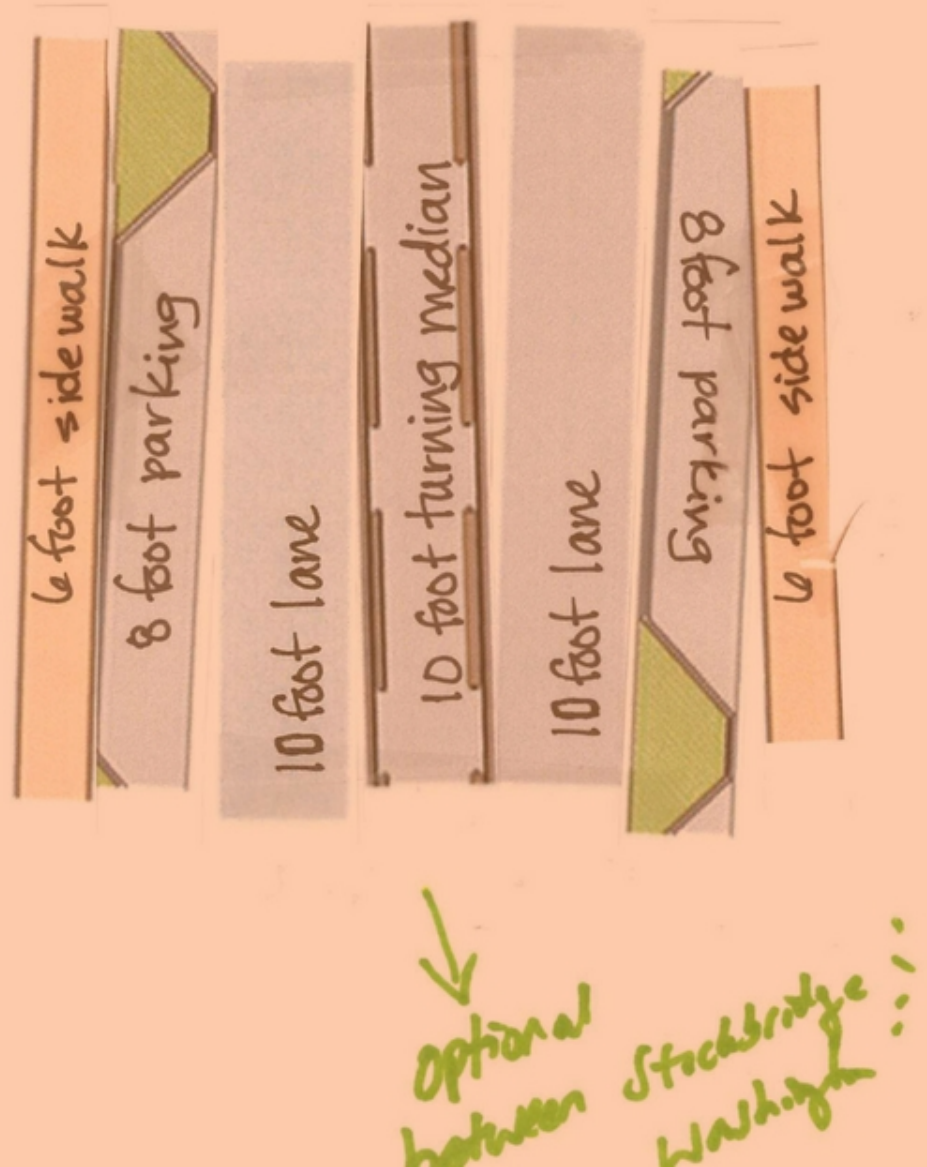 6 foot sidewalk
8 foot parking
10 foot lane
10 foot turning median
10 foot lane
8 foot parking
6 foot sidewalk
Optional
between Stockbridge
Washington